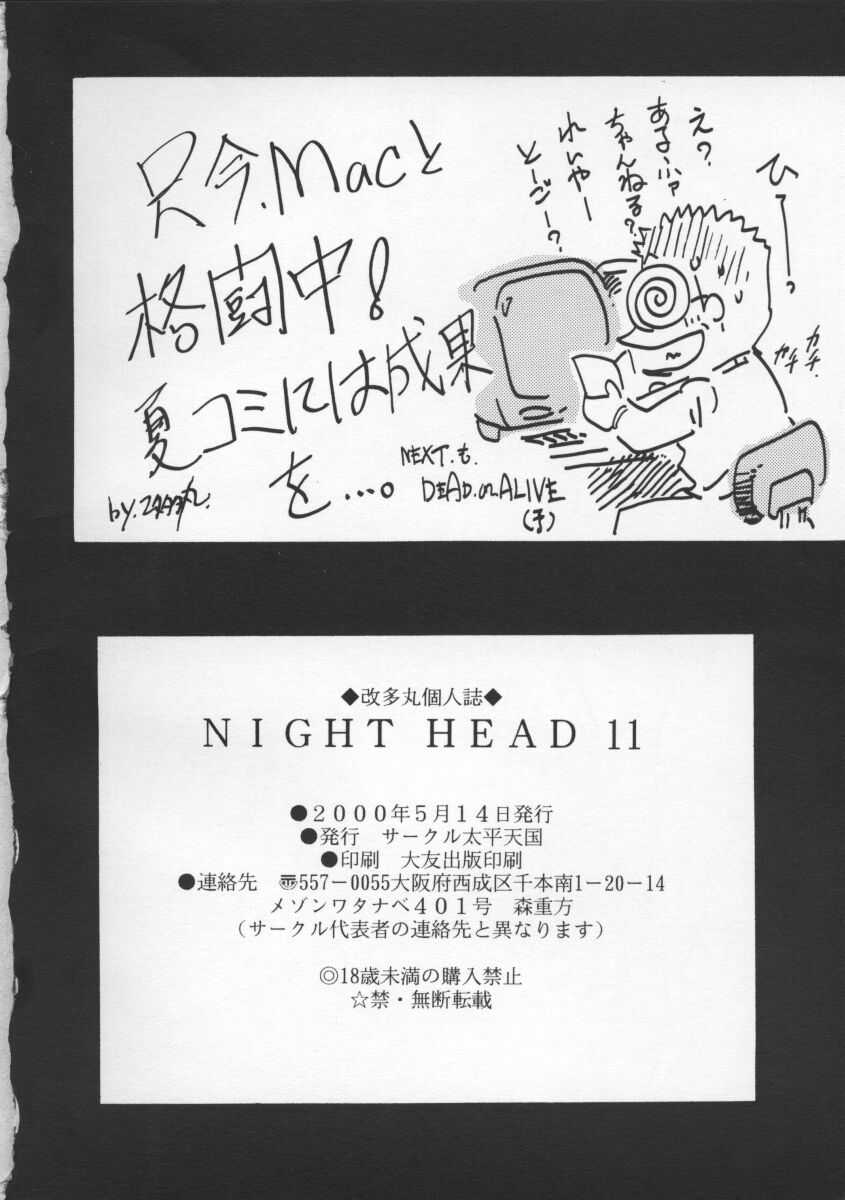 只今、Macと
格闘中!
夏コミには成果
を…。
え?
あるふァ
ちゃんねる?
れいやー
とーごー?
ひーっ
カチ
カチ
NEXT.も.
DEAD.or.ALIVE
(予)
◆改多丸個人誌◆
NIGHT HEAD 11
●2000年5月14日発行
●発行 サークル太平天国
●印刷 大友出版印刷
●連絡先 〠557-0055大阪府西成区千本南1-20-14
メゾンワタナベ401号 森重方
(サークル代表者の連絡先と異なります)
◎18歳未満の購入禁止
☆禁・無断転載